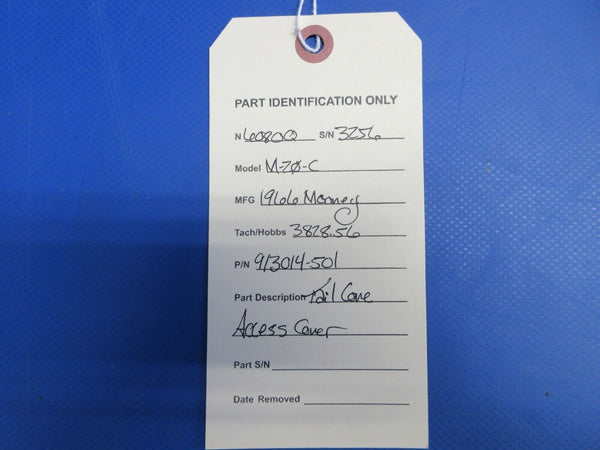 PART IDENTIFICATION ONLY
N 6080Q S/N 3256
Model M-20-C
MFG 1966 Mooney
Tach/Hobbs 3828.56
P/N 913014-501
Part Description Tail Cone
Access Cover
Part S/N
Date Removed